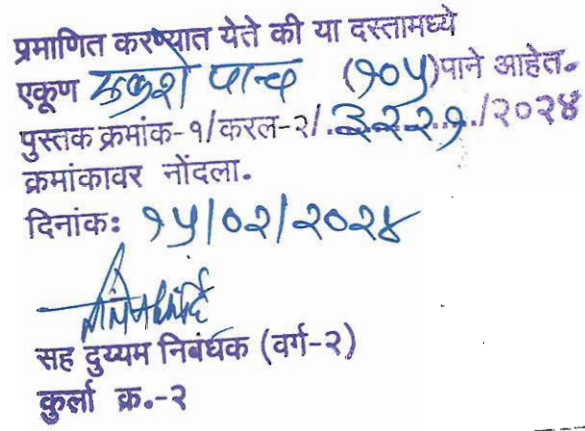 प्रमाणित करण्यात येते की या दस्तामध्ये
एकूण एकशे पाच (१०५) पाने आहेत.
पुस्तक क्रमांक-१/करल-२/.३२२१./२०२४
क्रमांकावर नोंदला.
दिनांकः १५/०२/२०२४
सह दुय्यम निबंधक (वर्ग-२)
कुर्ला क्र.-२